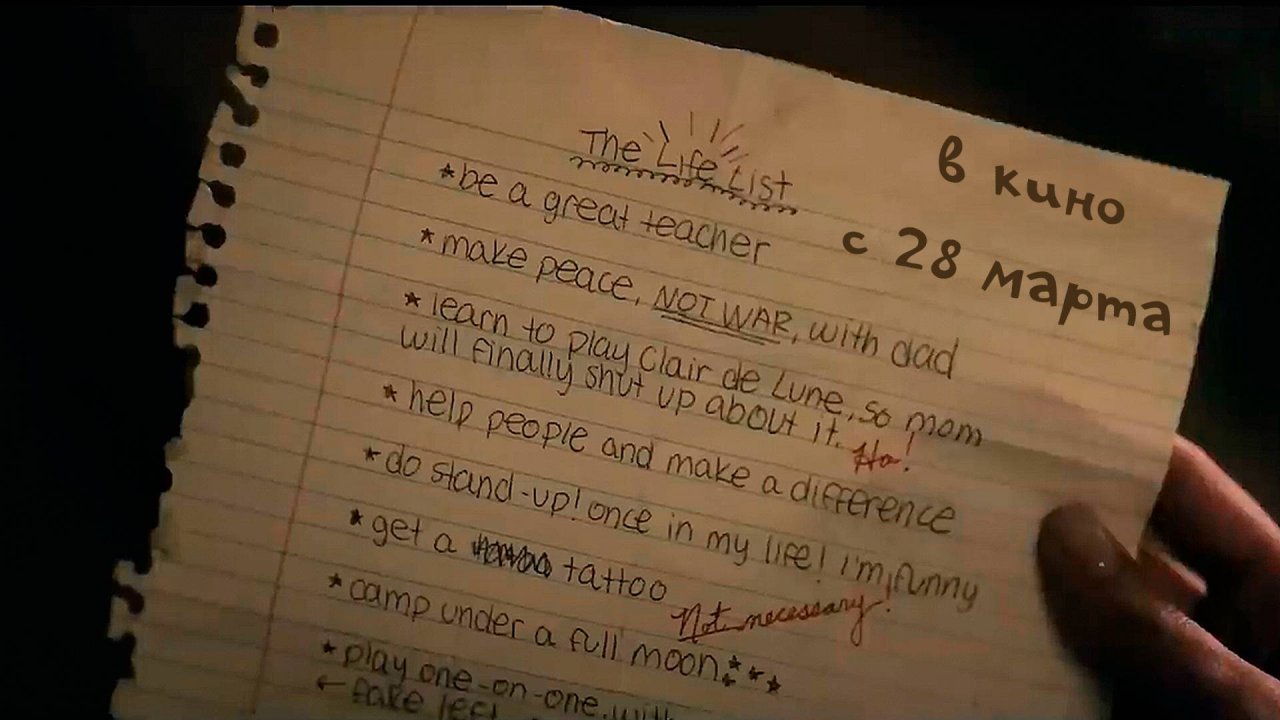 The Life List
*be a great teacher
*make peace, NOT WAR, with dad
*learn to play Clair de Lune, so mom
will finally shut up about it. Ha!
*help people and make a difference
*do stand-up! once in my life! I'm funny!
*get a tattoo
Not necessary!
*camp under a full moon
*play one-on-one with
← fake left
в кино
с 28 марта